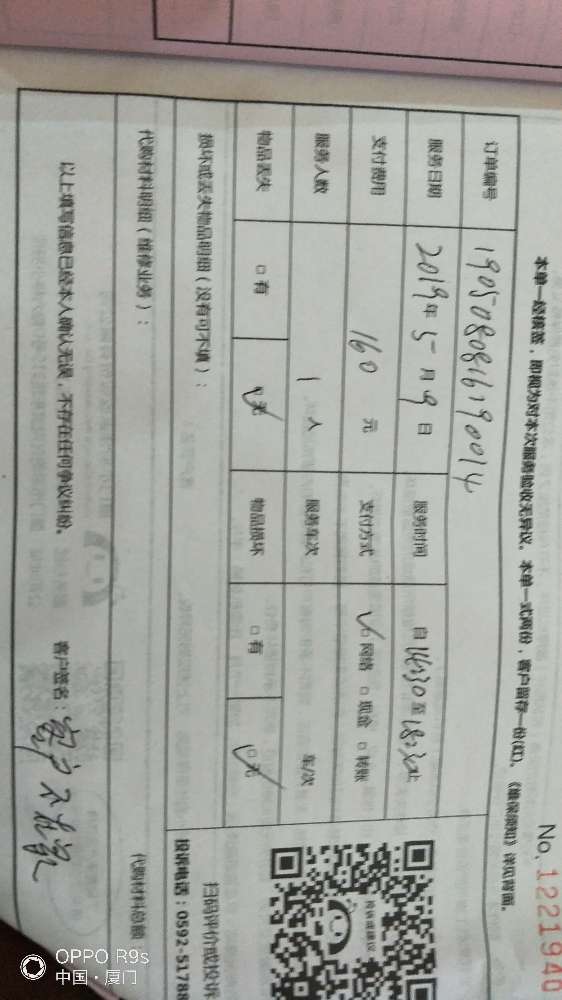 No. 1221940
本单一经核签，即视为对本次服务验收无异议。本单一式两份，客户留存一份(红)。《维保须知》详见背面。
订单编号 19050808161900 14
服务日期 2019年5月9日 服务时间 自16:30至18:30止
支付费用 160 元 支付方式 □网络 □现金 □转账
服务人数 1 人 服务车次 车/次
物品丢失 □有 □无 物品损坏 □有 □无
损坏或丢失物品明细（没有可不填）：
代购材料明细（维修业务）：
代购材料总额
以上填写信息已经本人确认无误，不存在任何争议纠纷。 客户签名：客户不在家
投诉或建议
扫码评价或投诉
投诉电话：0592-51788
OPPO R9s
中国·厦门